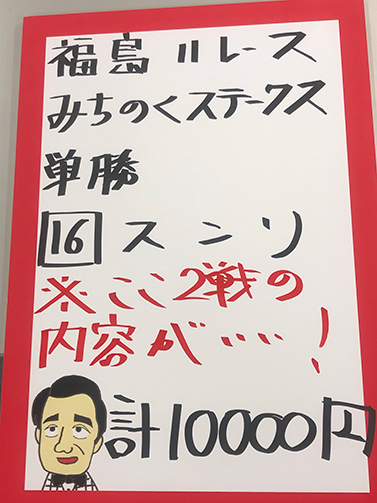 福島11レース
みちのくステークス
単勝
16 スンリ
※ここ2戦の
内容が……!
計10000円